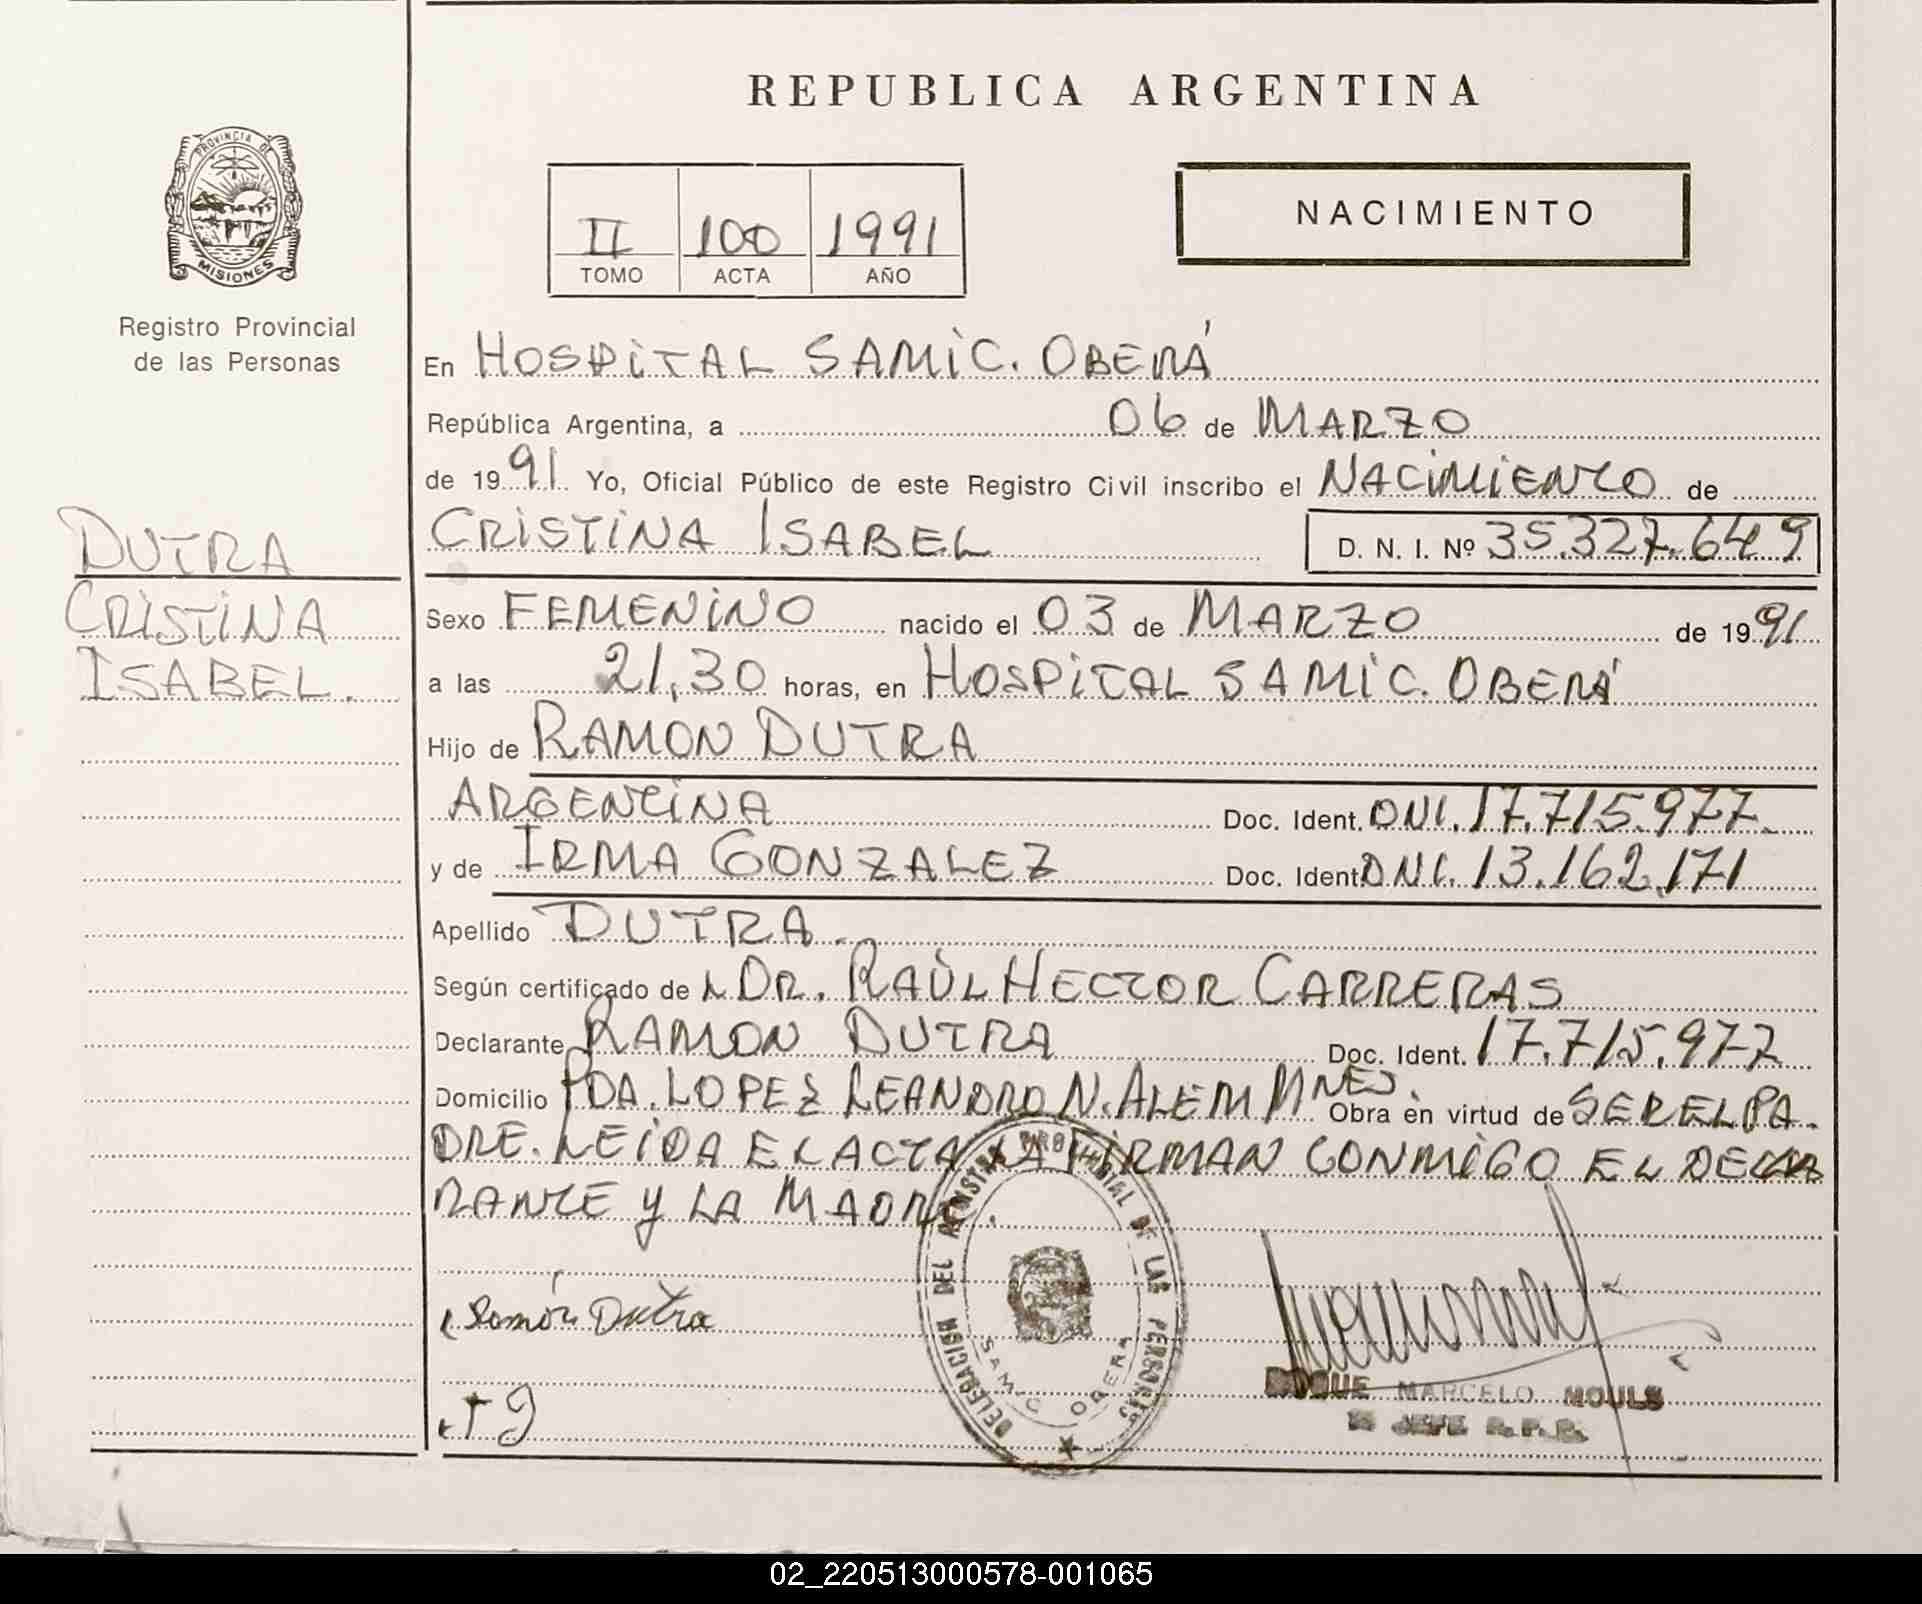 REPUBLICA ARGENTINA
PROVINCIA DE
MISIONES
Registro Provincial
de las Personas
II 100 1991
TOMO ACTA AÑO
NACIMIENTO
En HOSPITAL SAMIC. OBERÁ
República Argentina, a 06 de MARZO
de 1991 Yo, Oficial Público de este Registro Civil inscribo el NACIMIENTO de
CRISTINA ISABEL D. N. I. Nº 35.327.649
DUTRA
CRISTINA
ISABEL.
Sexo FEMENINO nacido el 03 de MARZO de 1991
a las 21,30 horas, en HOSPITAL SAMIC. OBERÁ
Hijo de RAMON DUTRA
ARGENTINA Doc. Ident. DNI. 17.715.977.
y de IRMA GONZALEZ Doc. Ident. DNI. 13.162.171
Apellido DUTRA.
Según certificado de L DR. RAÚL HECTOR CARRERAS
Declarante RAMON DUTRA Doc. Ident. 17.715.977
Domicilio PDA. LOPEZ LEANDRO N. ALEM MNES. Obra en virtud de SER EL PA-
DRE. LEIDA EL ACTA LA FIRMAN CONMIGO EL DECLA
RANTE Y LA MADRE.
Ramón Dutra
DELEGACION DEL REGISTRO PROVINCIAL DE LAS PERSONAS
SAMIC OBERA
ROQUE MARCELO MOULS
JEFE R.P.P.
+ g
02_220513000578-001065